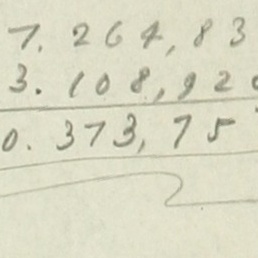 7.264,83
3.108,92
0.373,75